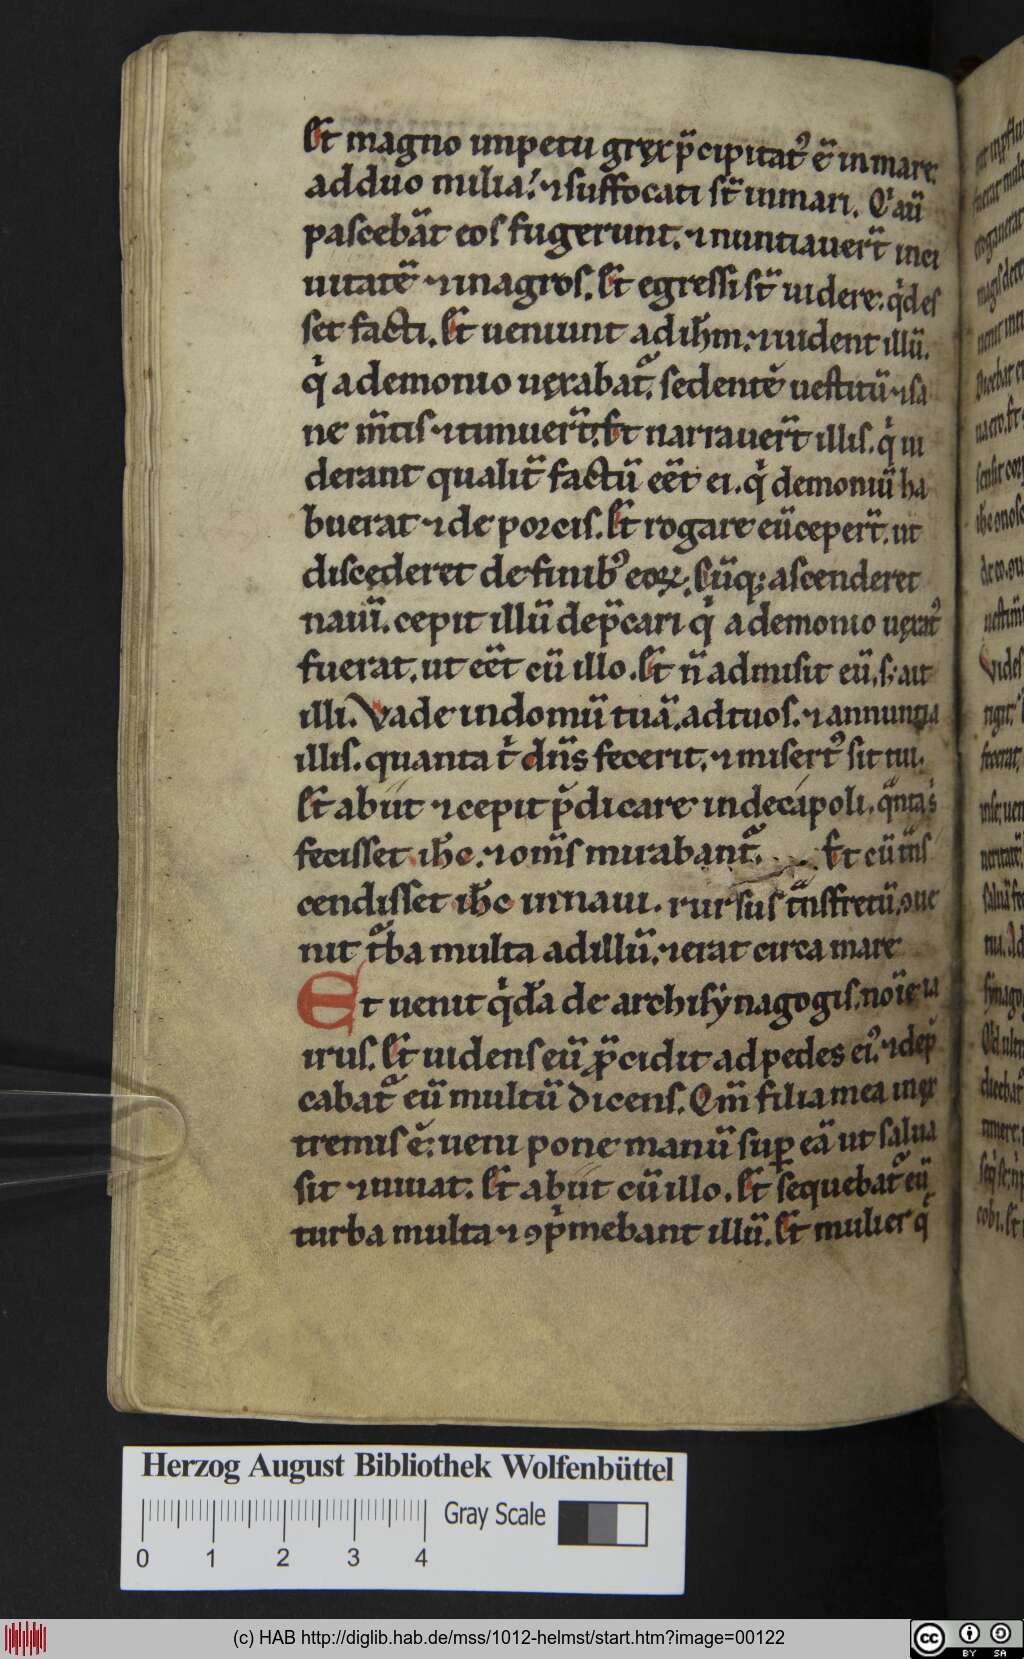 Et magno impetu gręx p̄cipitatꝰ ē in mare
ad duo milia. ⁊ suffocati st̄ in mari. Qͥ aū
pascebāt eos fugerunt. ⁊ nuntiauer̄t in ci
uitatē ⁊ in agros. Et egressi st̄ uidere. qͥd es
set facti. Et ueniunt ad ih̄m. ⁊ uident illū.
qͥ a demonio uęxabat᷑. sedentē uestitū ⁊ sa
ne m̄tis ⁊ timuer̄t. Et narrauer̄t illis. qͥ ui
derant qualit̄ factū eēt ei. qͥ demoniū ha
buerat ⁊ de porcis. Et rogare eū ceper̄t. ut
discęderet de finibꝰ eoꝝ. Cūqꝫ ascenderet
nauī. cepit illū dep̄cari qͥ a demonio uęxatꝰ
fuerat. ut eēt cū illo. Et n̄ admisit eū. sꝫ ait
illi. Vade in domū tuā. ad tuos. ⁊ annuntia
illis. quanta tͥ dn̄s fecerit. ⁊ misertꝰ sit tui.
Et abiit ⁊ cepit p̄dicare in decapoli. qͣnta sͥ
fecisset ih̄c. ⁊ om̄s mirabant᷑. Et cū īns
cendisset ih̄c in naui. rursus tͣnsfretū. ꝯue
nit tͬba multa ad illū. ⁊ erat circa mare
Et uenit qͥdā de archisẏnagogis. noīe ia
irus. Et uidens eū p̄cidit ad pedes eiꝰ. ⁊ dep̄
cabat᷑ eū multū dicens. Qm̄ filia mea in ex
tremis ē. ueni pone manū suꝑ eā ut salua
sit ⁊ uiuat. Et abiit cū illo. Et sequebat᷑ eū
turba multa ⁊ ꝯpͥmebant illū. Et mulier qͥ
Herzog August Bibliothek Wolfenbüttel
Gray Scale
0 1 2 3 4
(c) HAB http://diglib.hab.de/mss/1012-helmst/start.htm?image=00122
cc BY SA